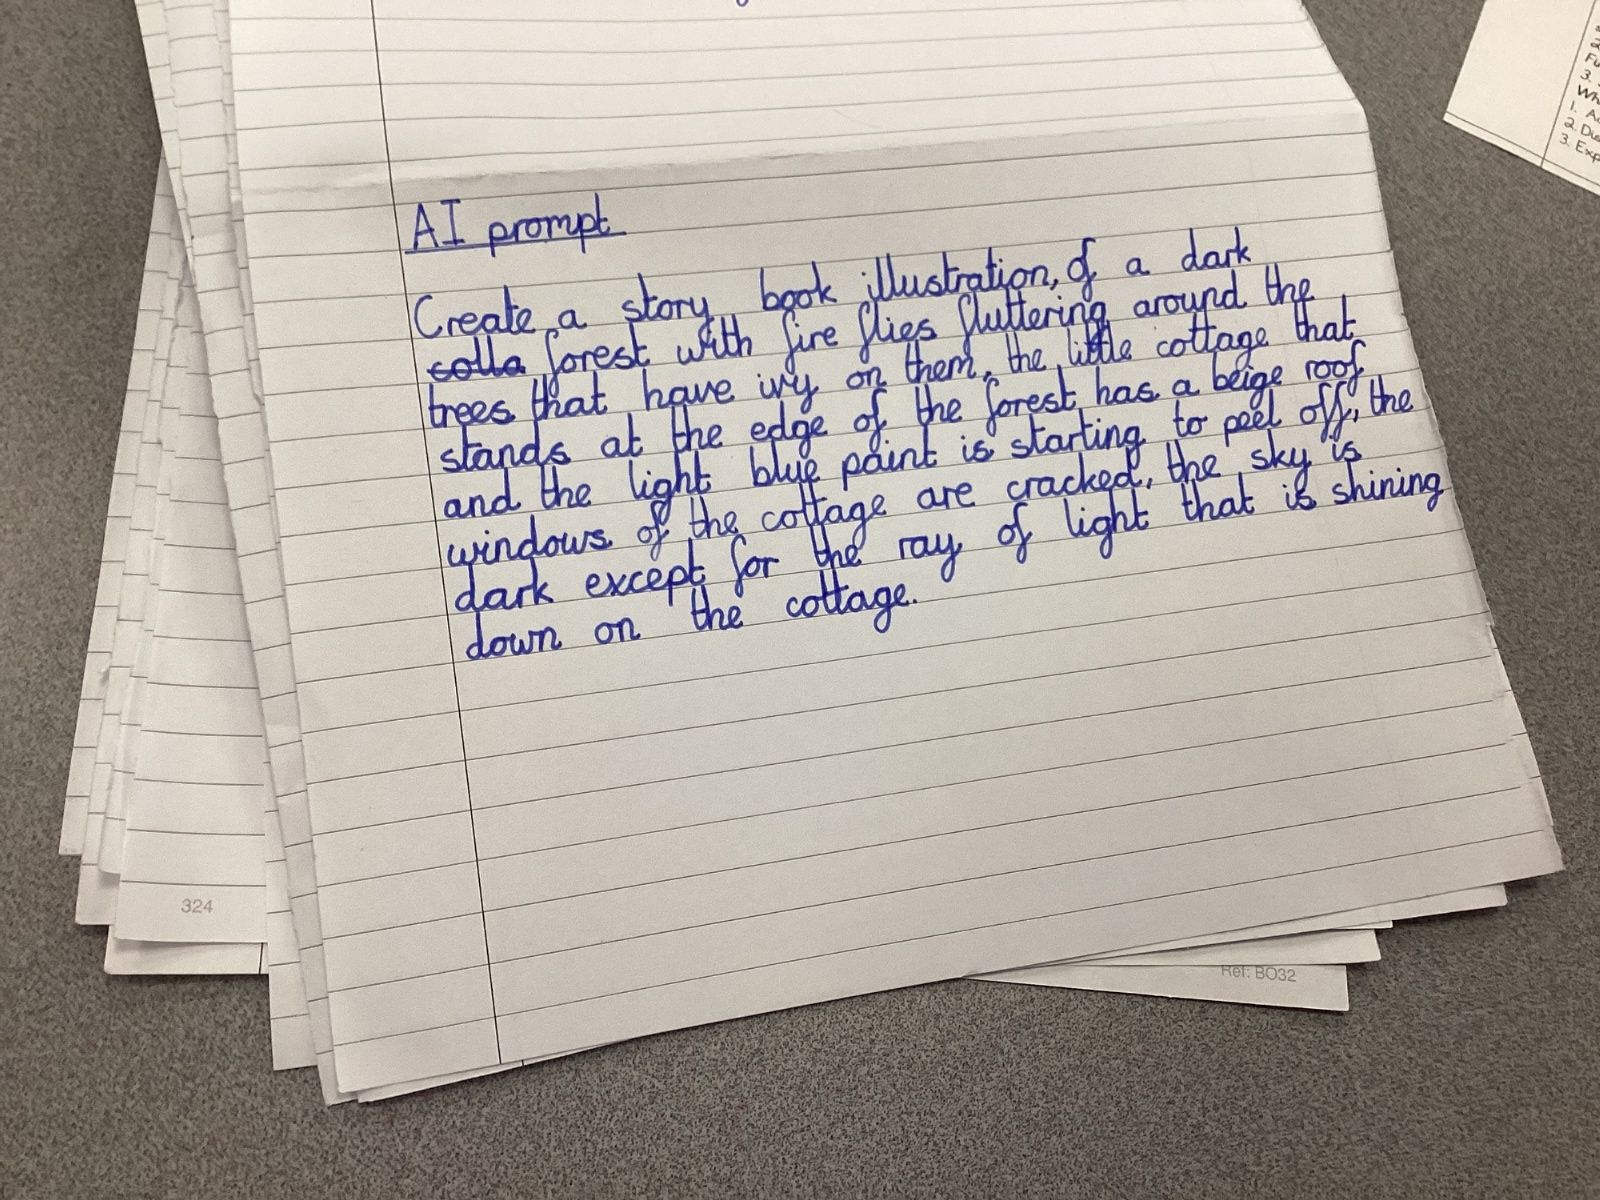 AI prompt
Create a story book illustration, of a dark
colla forest with fire flies fluttering around the
trees that have ivy on them, the little cottage that
stands at the edge of the forest has a beige roof
and the light blue paint is starting to peel off, the
windows of the cottage are cracked, the sky is
dark except for the ray of light that is shining
down on the cottage.
324
Ref: BO32
3.
1.
2.
3. Exp